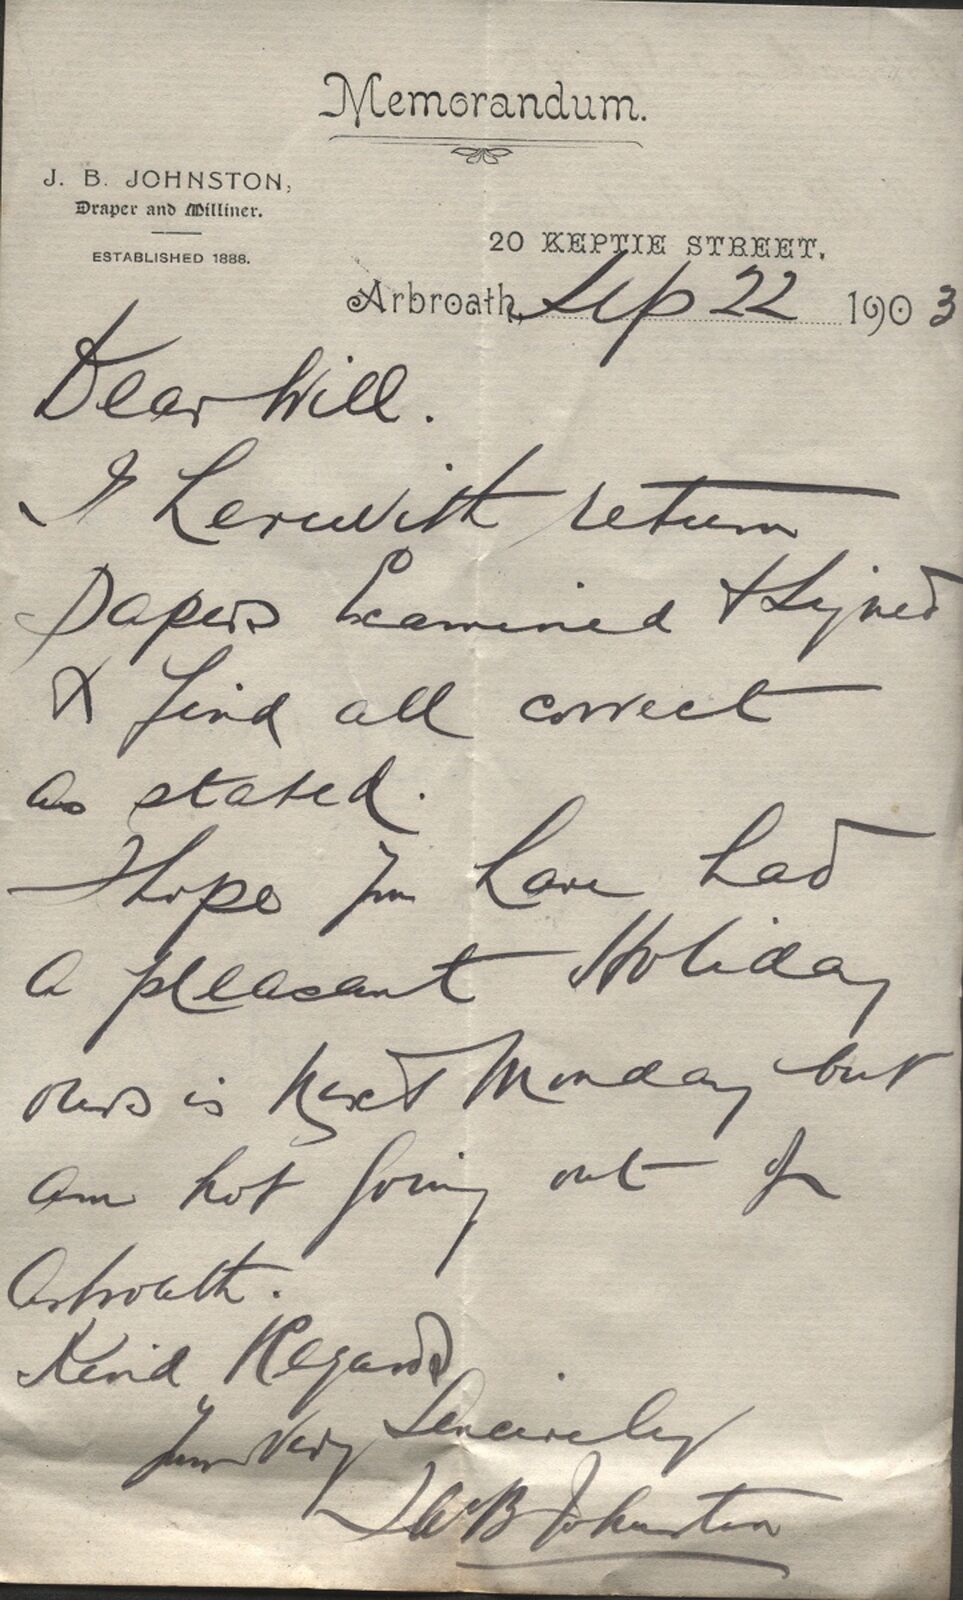 Memorandum.
J. B. JOHNSTON,
Draper and Milliner.
ESTABLISHED 1888.
20 KEPTIE STREET,
Arbroath, Sep 22 1903
Dear Will.
I herewith return
papers Examined & Signed
& find all correct
as stated.
I hope you have had
a pleasant Holiday
ours is Next Monday but
am not going out of
Arbroath.
Kind Regards
Your Very Sincerely
JasB Johnston